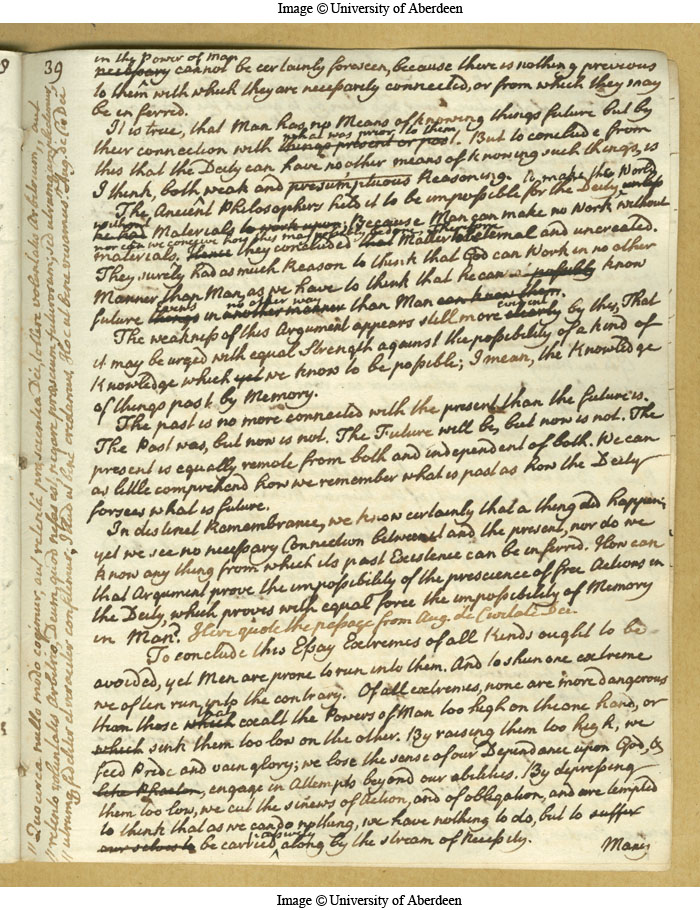 Image © University of Aberdeen
39
in the Power of Man
necessary cannot be certainly foreseen, because there is nothing previous
to them with which they are necessarily connected, or from which they may
be inferred.
It is true, that Man has no Means of knowing things future but by
what was prior to them,
their connection with things present or past. But to conclude from
this that the Deity can have no other means of knowing such things, is
I think, both weak and presumptuous Reasoning.
to make the World
The Ancient Philosophers held it to be impossible for the Deity unless
without
he had Materials to work upon; Because Man can make no Work without
nor can we conceive how this may possibly be done; therefore
materials. Hence they concluded that Matter to be Eternal and uncreated.
They surely had as much Reason to think that God can Work in no other
Manner than Man, as we have to think that he can possibly know
Events no other way
future things in another manner than Man can know them.
evident
The weakness of this Argument appears still more clearly by this, That
it may be urged with equal Strength against the possibility of a kind of
Knowledge which yet we know to be possible; I mean, the Knowledge
of things past by Memory.
The past is no more connected with the present than the future is.
The Past was, but now is not. The Future will be, but now is not. The
present is equally remote from both and independent of both. We can
as little comprehend how we remember what is past as how the Deity
forsees what is future.
In distinct Remembrance, we know certainly that a thing did happen;
yet we see no necessary Connection between it and the present, nor do we
know any thing from which its past Existence can be inferred. How can
that Argument prove the impossibility of the prescience of free Actions in
the Deity, which proves with equal force the impossibility of Memory
in Man? Here quote the passage from Aug. de Civitate Dei.
To conclude this Essay Extremes of all Kinds ought to be
avoided, yet Men are prone to run into them. And to shun one extreme
we often run into the contrary. Of all extremes, none are more dangerous
that
than those which exall the Powers of Man too high on the one hand, or
which sink them too low on the other. By raising them too high, we
feed Pride and vain glory; we lose the sense of our Dependance upon God, &
like Phaeton, engage in Attempts beyond our abilities. By depressing
them too low, we cut the sinews of Action, and of obligation, and are tempted
to think that as we can do nothing, we have nothing to do, but to suffer
passively
our selves to be carried along by the stream of Necessity.
Many
"Quocirca nullo modo cogimur, aut retentâ praescientiâ Dei, tollere voluntatis Arbitrium, aut
"retento voluntatis Arbitrio, Deum, quod nefas est, negare praescium futurorum; sed utrumque amplectimur,
"utrumque fideliter et veraciter confitemur; Illud ut bene credamus, Hoc ut bene vivamus. Aug. de Civ. Dei
Image © University of Aberdeen